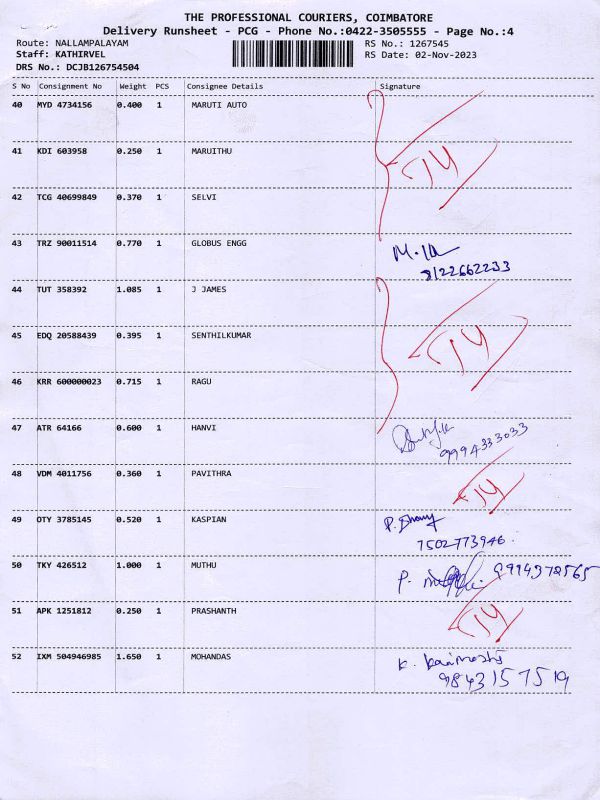 THE PROFESSIONAL COURIERS, COIMBATORE
Delivery Runsheet - PCG - Phone No.:0422-3505555 - Page No.:4
Route: NALLAMPALAYAM RS No.: 1267545
Staff: KATHIRVEL RS Date: 02-Nov-2023
DRS No.: DCJB126754504
S No Consignment No Weight PCS Consignee Details Signature
40 MYD 4734156 0.400 1 MARUTI AUTO
41 KDI 603958 0.250 1 MARUITHU
42 TCG 40699849 0.370 1 SELVI
43 TRZ 90011514 0.770 1 GLOBUS ENGG
8122662233
44 TUT 358392 1.085 1 J JAMES
45 EDQ 20588439 0.395 1 SENTHILKUMAR
46 KRR 600000023 0.715 1 RAGU
47 ATR 64166 0.600 1 HANVI
9994333033
48 VDM 4011756 0.360 1 PAVITHRA
49 OTY 3785145 0.520 1 KASPIAN
7502773946
50 TKY 426512 1.000 1 MUTHU
51 APK 1251812 0.250 1 PRASHANTH
52 IXM 504946985 1.650 1 MOHANDAS
9843157519